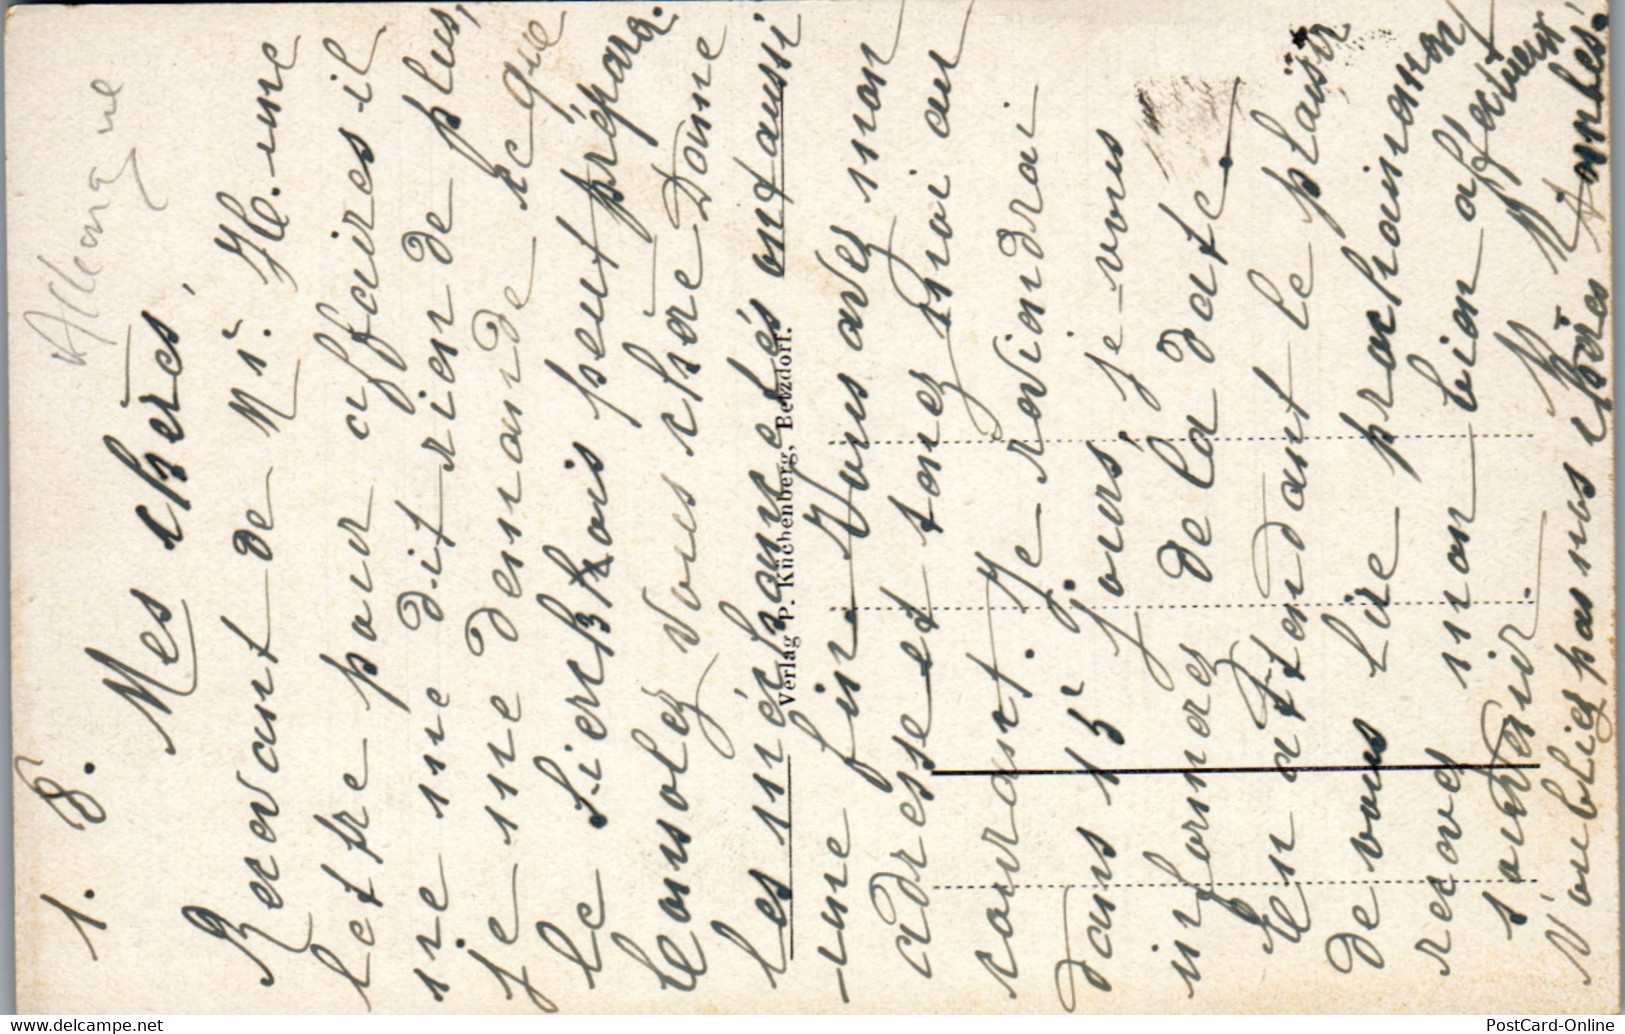 Allemagne
1. 8.
Mes chères,
Recevant de Mr. H. une
lettre pour affaires il
ne me dit rien de plus,
je me demande ce que
le peut prépara.
Consolez vous chère Dame
les méchancetés ont aussi
une fin. Vous avez mon
adresse et tenez moi au
courant. Je reviendrai
dans 15 jours, je-vous
informes de la date.
En attendant le plaisir
de vous lire prochainement
recevez mon bien affectueux
souvenir.
N'oubliez pas nos chères
Verlag P. Küchenberg, Betzdorf.
www.delcampe.net
PostCard-Online